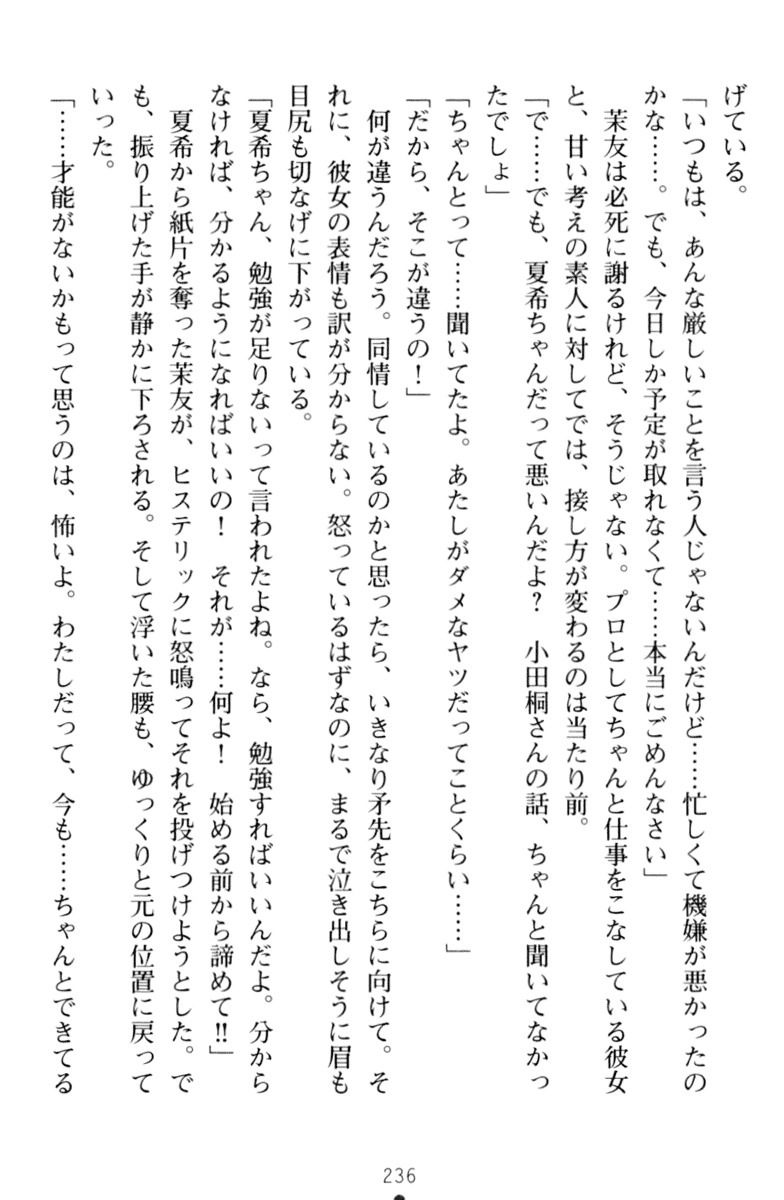 げている。
「いつもは、あんな厳しいことを言う人じゃないんだけど……忙しくて機嫌が悪かったの
かな……。でも、今日しか予定が取れなくて……本当にごめんなさい」
　茉友は必死に謝るけれど、そうじゃない。プロとしてちゃんと仕事をこなしている彼女
と、甘い考えの素人に対してでは、接し方が変わるのは当たり前。
「で……でも、夏希ちゃんだって悪いんだよ？　小田桐さんの話、ちゃんと聞いてなかっ
たでしょ」
「ちゃんとって……聞いてたよ。あたしがダメなヤツだってことくらい……」
「だから、そこが違うの！」
　何が違うんだろう。同情しているのかと思ったら、いきなり矛先をこちらに向けて。そ
れに、彼女の表情も訳が分からない。怒っているはずなのに、まるで泣き出しそうに眉も
目尻も切なげに下がっている。
「夏希ちゃん、勉強が足りないって言われたよね。なら、勉強すればいいんだよ。分から
なければ、分かるようになればいいの！　それが……何よ！　始める前から諦めて!!」
　夏希から紙片を奪った茉友が、ヒステリックに怒鳴ってそれを投げつけようとした。で
も、振り上げた手が静かに下ろされる。そして浮いた腰も、ゆっくりと元の位置に戻って
いった。
「……才能がないかもって思うのは、怖いよ。わたしだって、今も……ちゃんとできてる
236